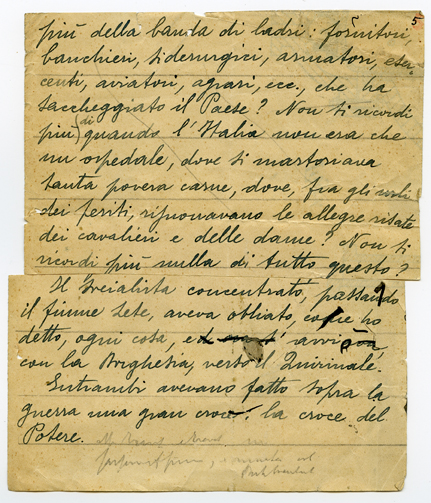 5
più della banda di ladri: fornitori,
banchieri, siderurgici, armatori, eser-
centi, aviatori, agrari, ecc., che ha
saccheggiato il Paese? Non ti ricordi
più di quando l'Italia non era che
un ospedale, dove si martoriava
tanta povera carne, dove, fra gli urli
dei feriti, risuonavano le allegre risate
dei cavalieri e delle dame? Non ti
ricordi più nulla di tutto questo?
Il Socialista concentrato, passando
il fiume Lete, aveva obliato, come ho
detto, ogni cosa, e
con la Borghesia, verso il Quirinale.
Entrambi avevano fatto sopra la
guerra una gran croce: la croce del
Potere.